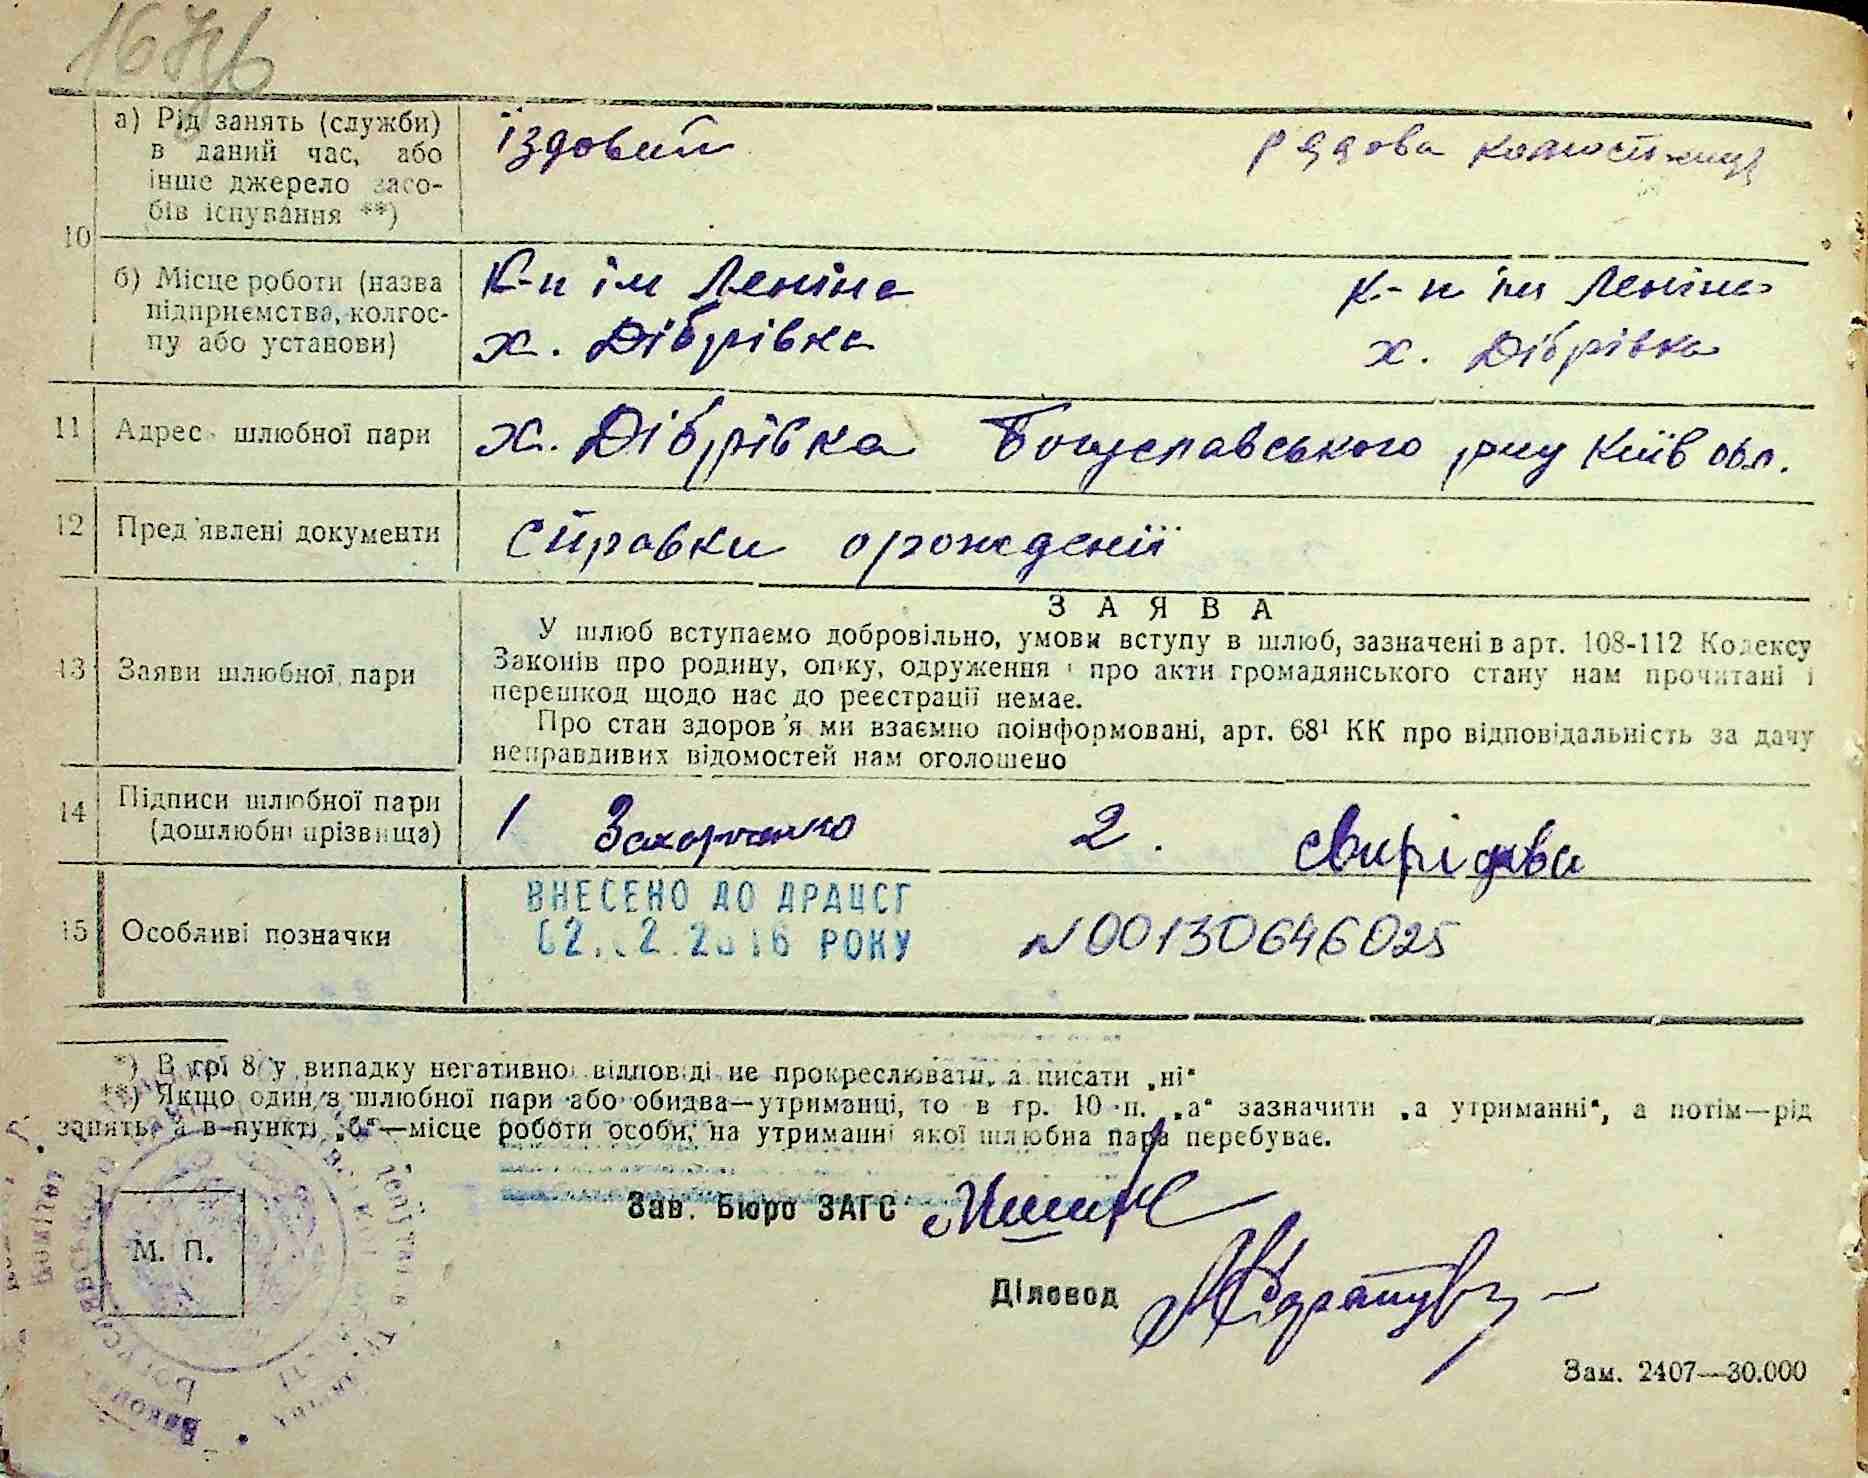 а) Рід занять (служби)
в даний час, або
інше джерело засо-
бів існування **)
їздовий
рядова колгоспниця
10
б) Місце роботи (назва
підприємства, колгос-
пу або установи)
К-п ім Леніна
х. Дібрівка
к-п ім Леніна
х. Дібрівка
11 Адрес шлюбної пари х. Дібрівка Богуславського р-ну Київ обл.
12 Пред'явлені документи Справки о рожденії
ЗАЯВА
13 Заяви шлюбної пари
У шлюб вступаємо добровільно, умови вступу в шлюб, зазначені в арт. 108-112 Кодексу
Законів про родину, опіку, одруження і про акти громадянського стану нам прочитані і
перешкод щодо нас до реєстрації немає.
Про стан здоров'я ми взаємно поінформовані, арт. 68¹ КК про відповідальність за дачу
неправдивих відомостей нам оголошено
14 Підписи шлюбної пари
(дошлюбні прізвища)
1 Захарченко 2. Свирідова
15 Особливі позначки
ВНЕСЕНО ДО ДРАЦСГ
02.02.2016 РОКУ
N00130646025
*) В грі 8 у випадку негативної відповіді не прокреслювати, а писати „ні“
**) Якщо один з шлюбної пари або обидва—утриманці, то в гр. 10 п. „а“ зазначити „а утриманні“, а потім—рід
занять, а в пункті „б“—місце роботи особи, на утриманні якої шлюбна пара перебуває.
Зав. Бюро ЗАГС
М. П.
Діловод
Зам. 2407—30.000